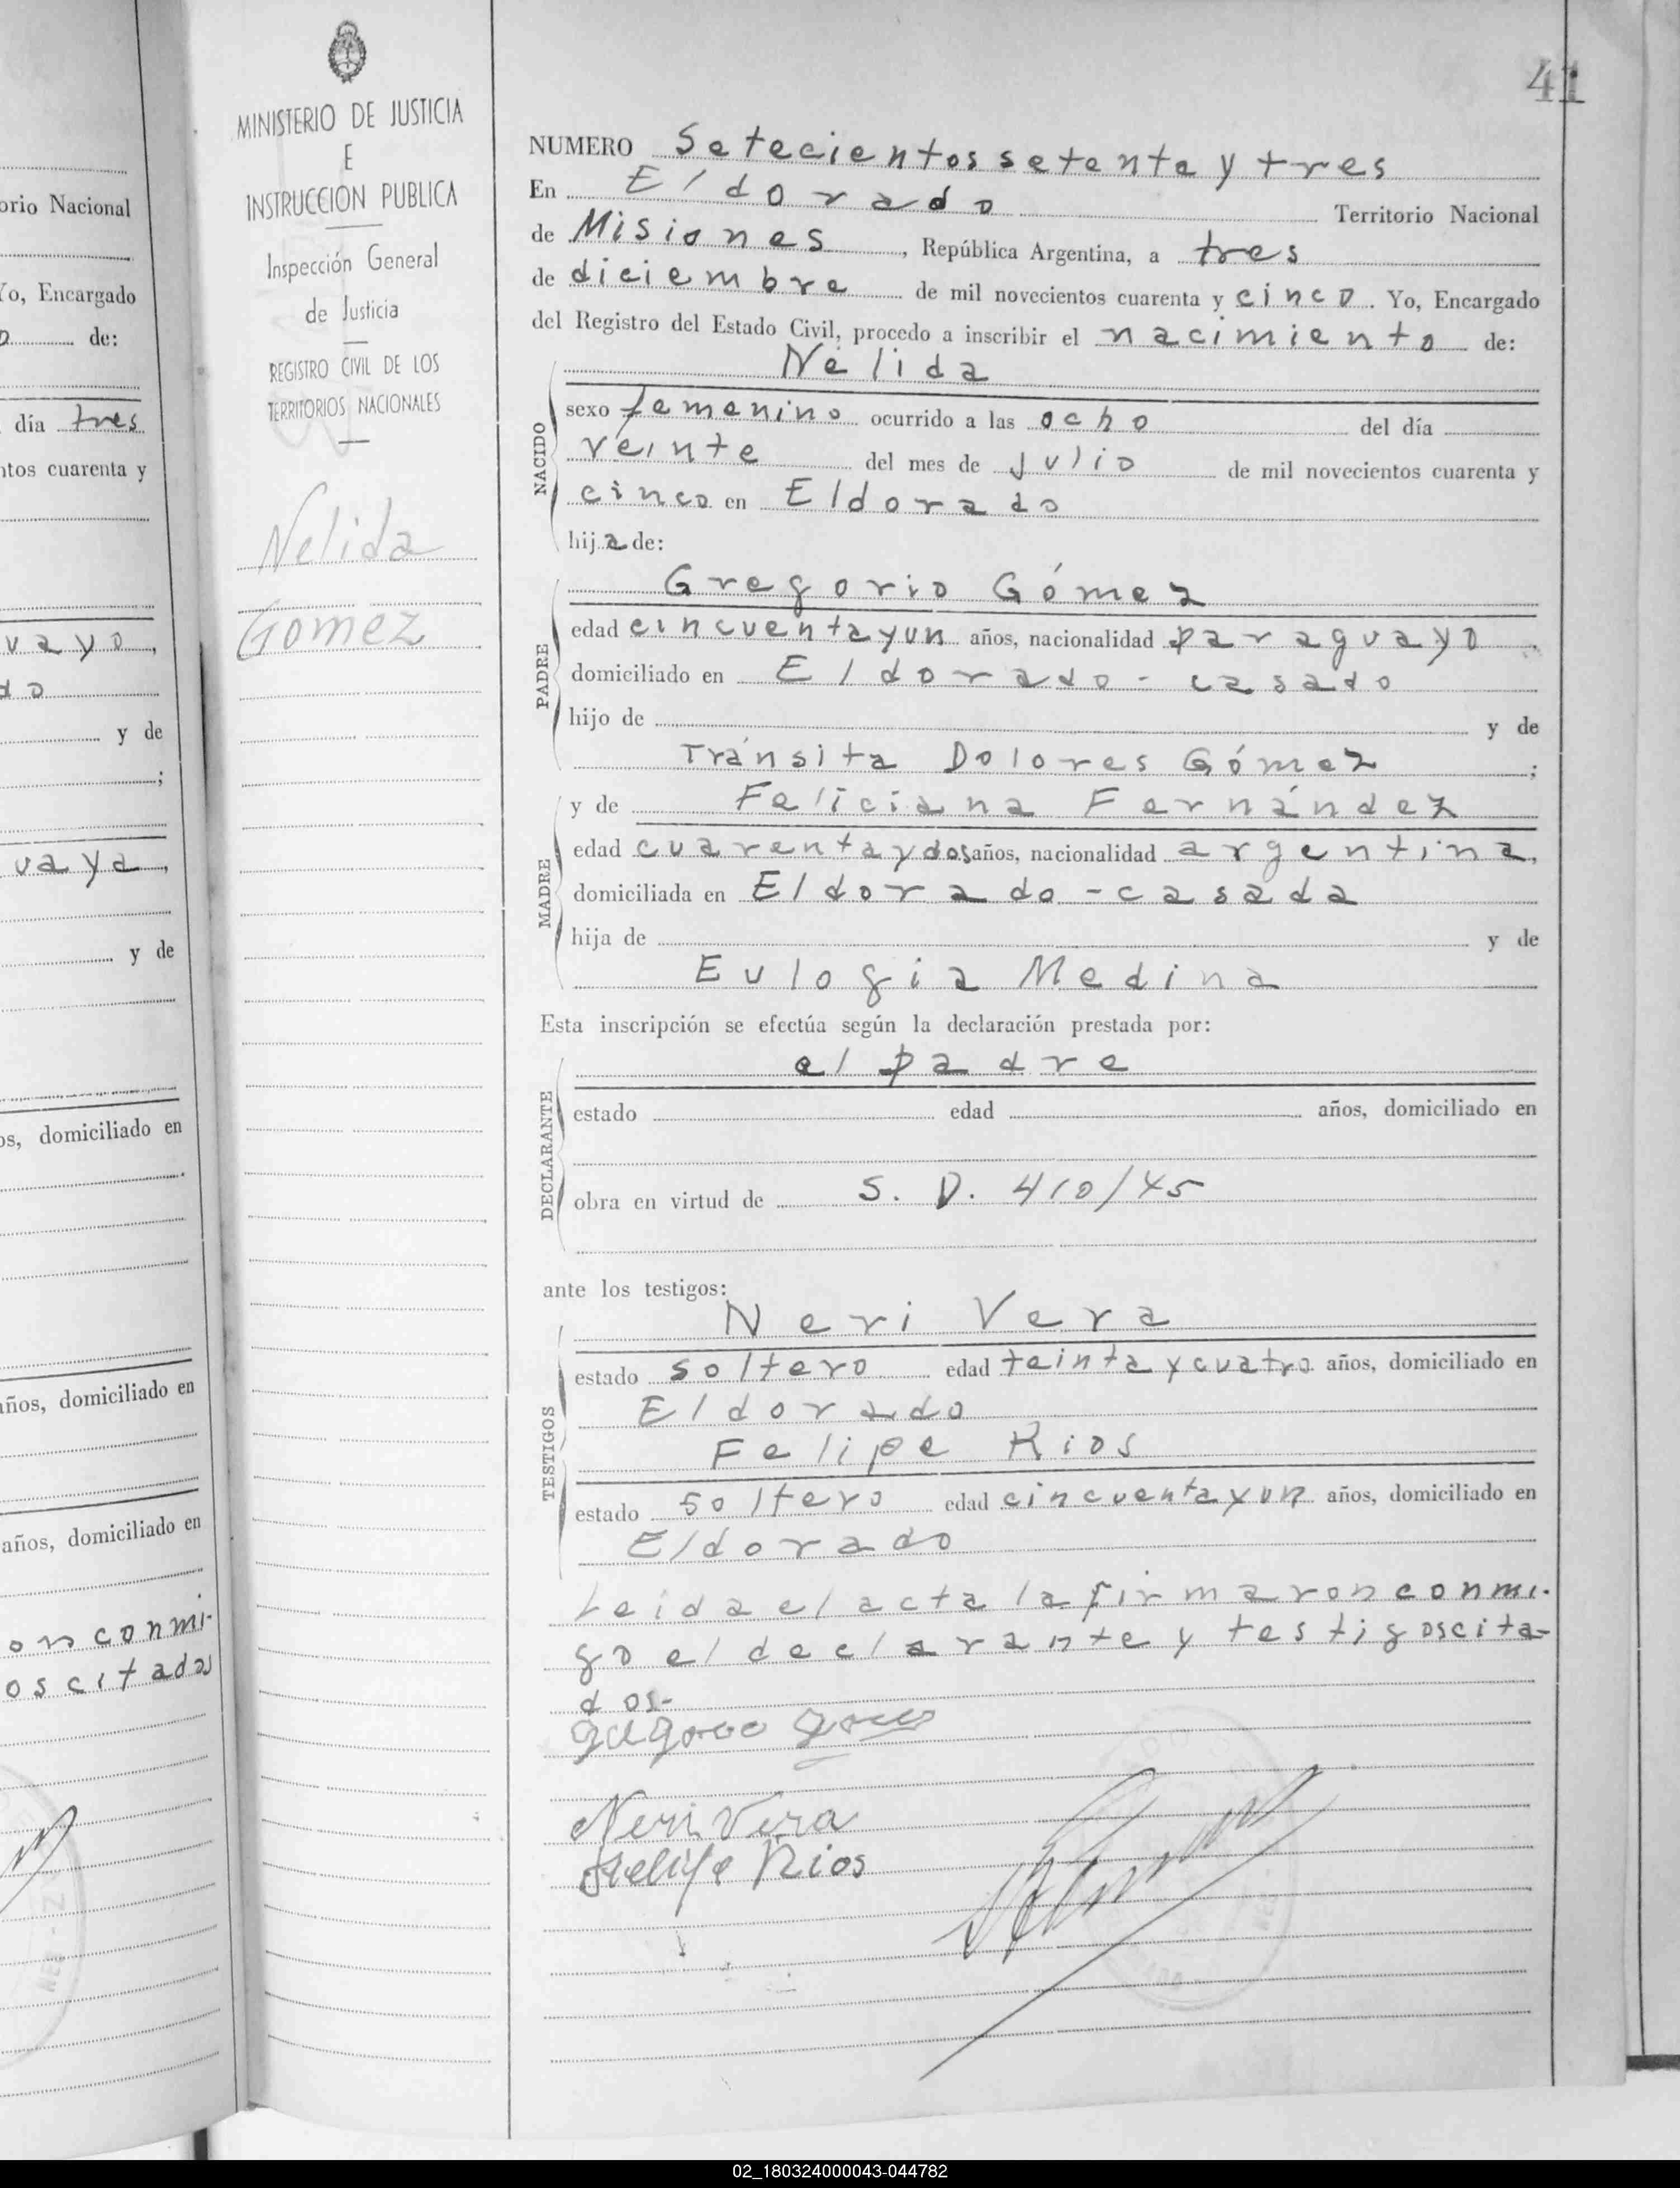 41
MINISTERIO DE JUSTICIA
E
INSTRUCCION PUBLICA
Inspección General
de Justicia
REGISTRO CIVIL DE LOS
TERRITORIOS NACIONALES
Nelida
Gomez
NUMERO Setecientos setenta y tres
En Eldorado Territorio Nacional
de Misiones, República Argentina, a tres
de diciembre de mil novecientos cuarenta y cinco. Yo, Encargado
del Registro del Estado Civil, procedo a inscribir el nacimiento de:
Nélida
NACIDO
sexo femenino ocurrido a las ocho del día
veinte del mes de julio de mil novecientos cuarenta y
cinco en Eldorado
hija de:
Gregorio Gómez
PADRE
edad cincuenta y un años, nacionalidad paraguayo
domiciliado en Eldorado - casado
hijo de y de
Tránsita Dolores Gómez;
y de Feliciana Fernández
MADRE
edad cuarenta y dos años, nacionalidad argentina,
domiciliada en Eldorado - casada
hija de y de
Eulogia Medina
Esta inscripción se efectúa según la declaración prestada por:
el padre
DECLARANTE
estado edad años, domiciliado en
obra en virtud de S. D. 410/45
ante los testigos:
Neri Vera
TESTIGOS
estado soltero edad teinta y cuatro años, domiciliado en
Eldorado
Felipe Rios
estado soltero edad cincuenta y un años, domiciliado en
Eldorado
Leida el acta la firmaron conmi-
go el declarante y testigos cita-
dos-
Neri Vera
Felipe Rios
orio Nacional
Yo, Encargado
de:
día tres
ntos cuarenta y
uayo,
do
y de
;
uaya,
y de
os, domiciliado en
años, domiciliado en
años, domiciliado en
on conmi-
os citados
02_180324000043-044782